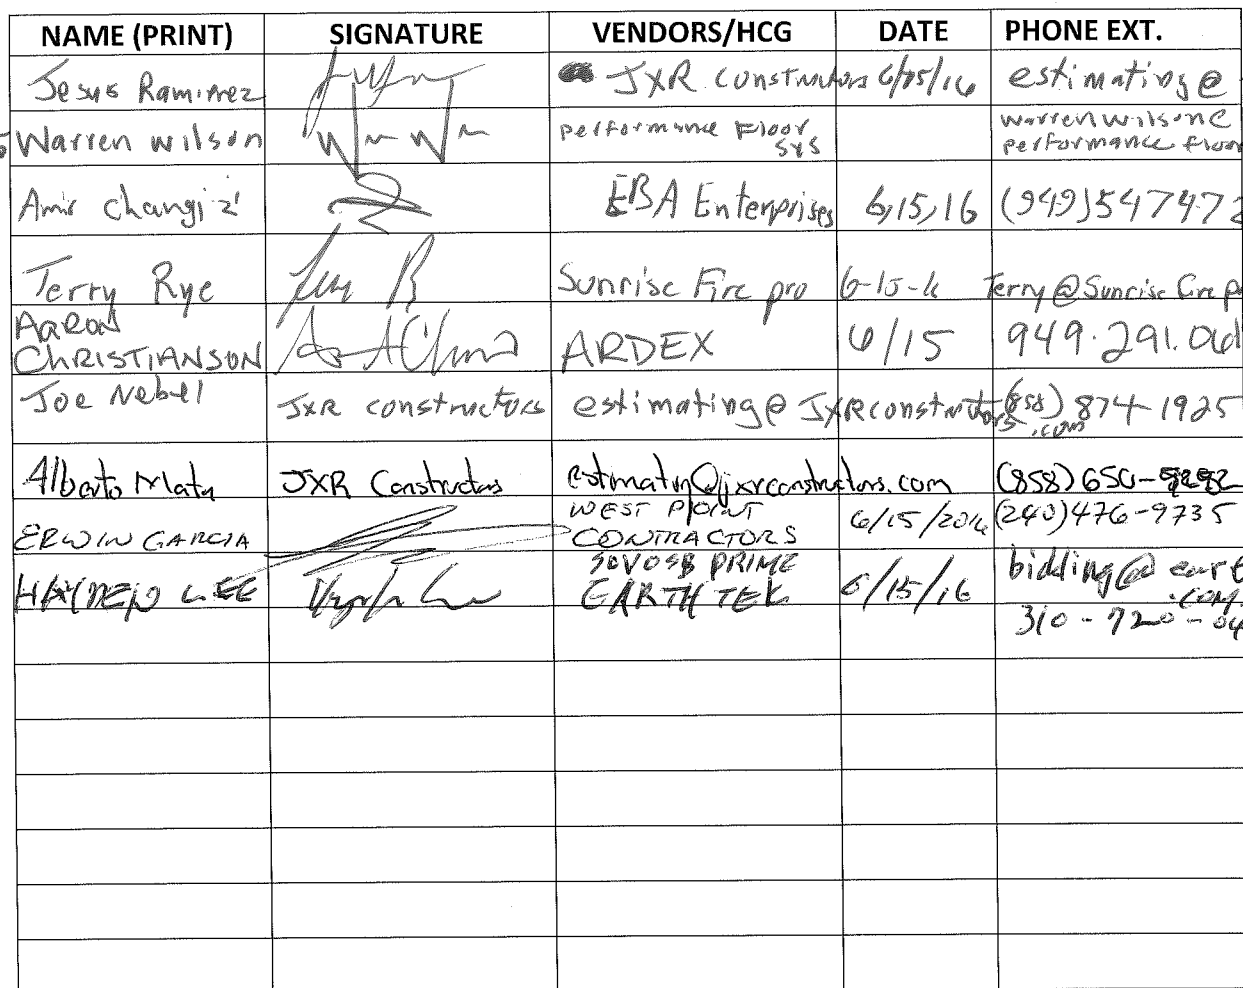 NAME (PRINT) SIGNATURE VENDORS/HCG DATE PHONE EXT.
Jesus Ramirez JXR constructors 6/15/16 estimating@
Warren wilson performance Floor warrenwilson@
sys performance floor
Amir changizi EBA Enterprises 6,15,16 (949)547472
Terry Rye Sunrise Fire pro 6-15-16 Terry@Sunrise fire
AARON
CHRISTIANSON ARDEX 6/15 949.291.
Joe Nebel JXR constructors estimating@JXRconstructors (858) 874-1925
.com
Alberto Mata JXR Constructors estimating@jxrconstructors.com (858)650-
WEST POINT 6/15/2016 (240)476-9735
ERWIN GARCIA CONTRACTORS
PRIME bidding@eart
HAYDEN LEE EARTH TEK 6/15/16 .com
310-720-04